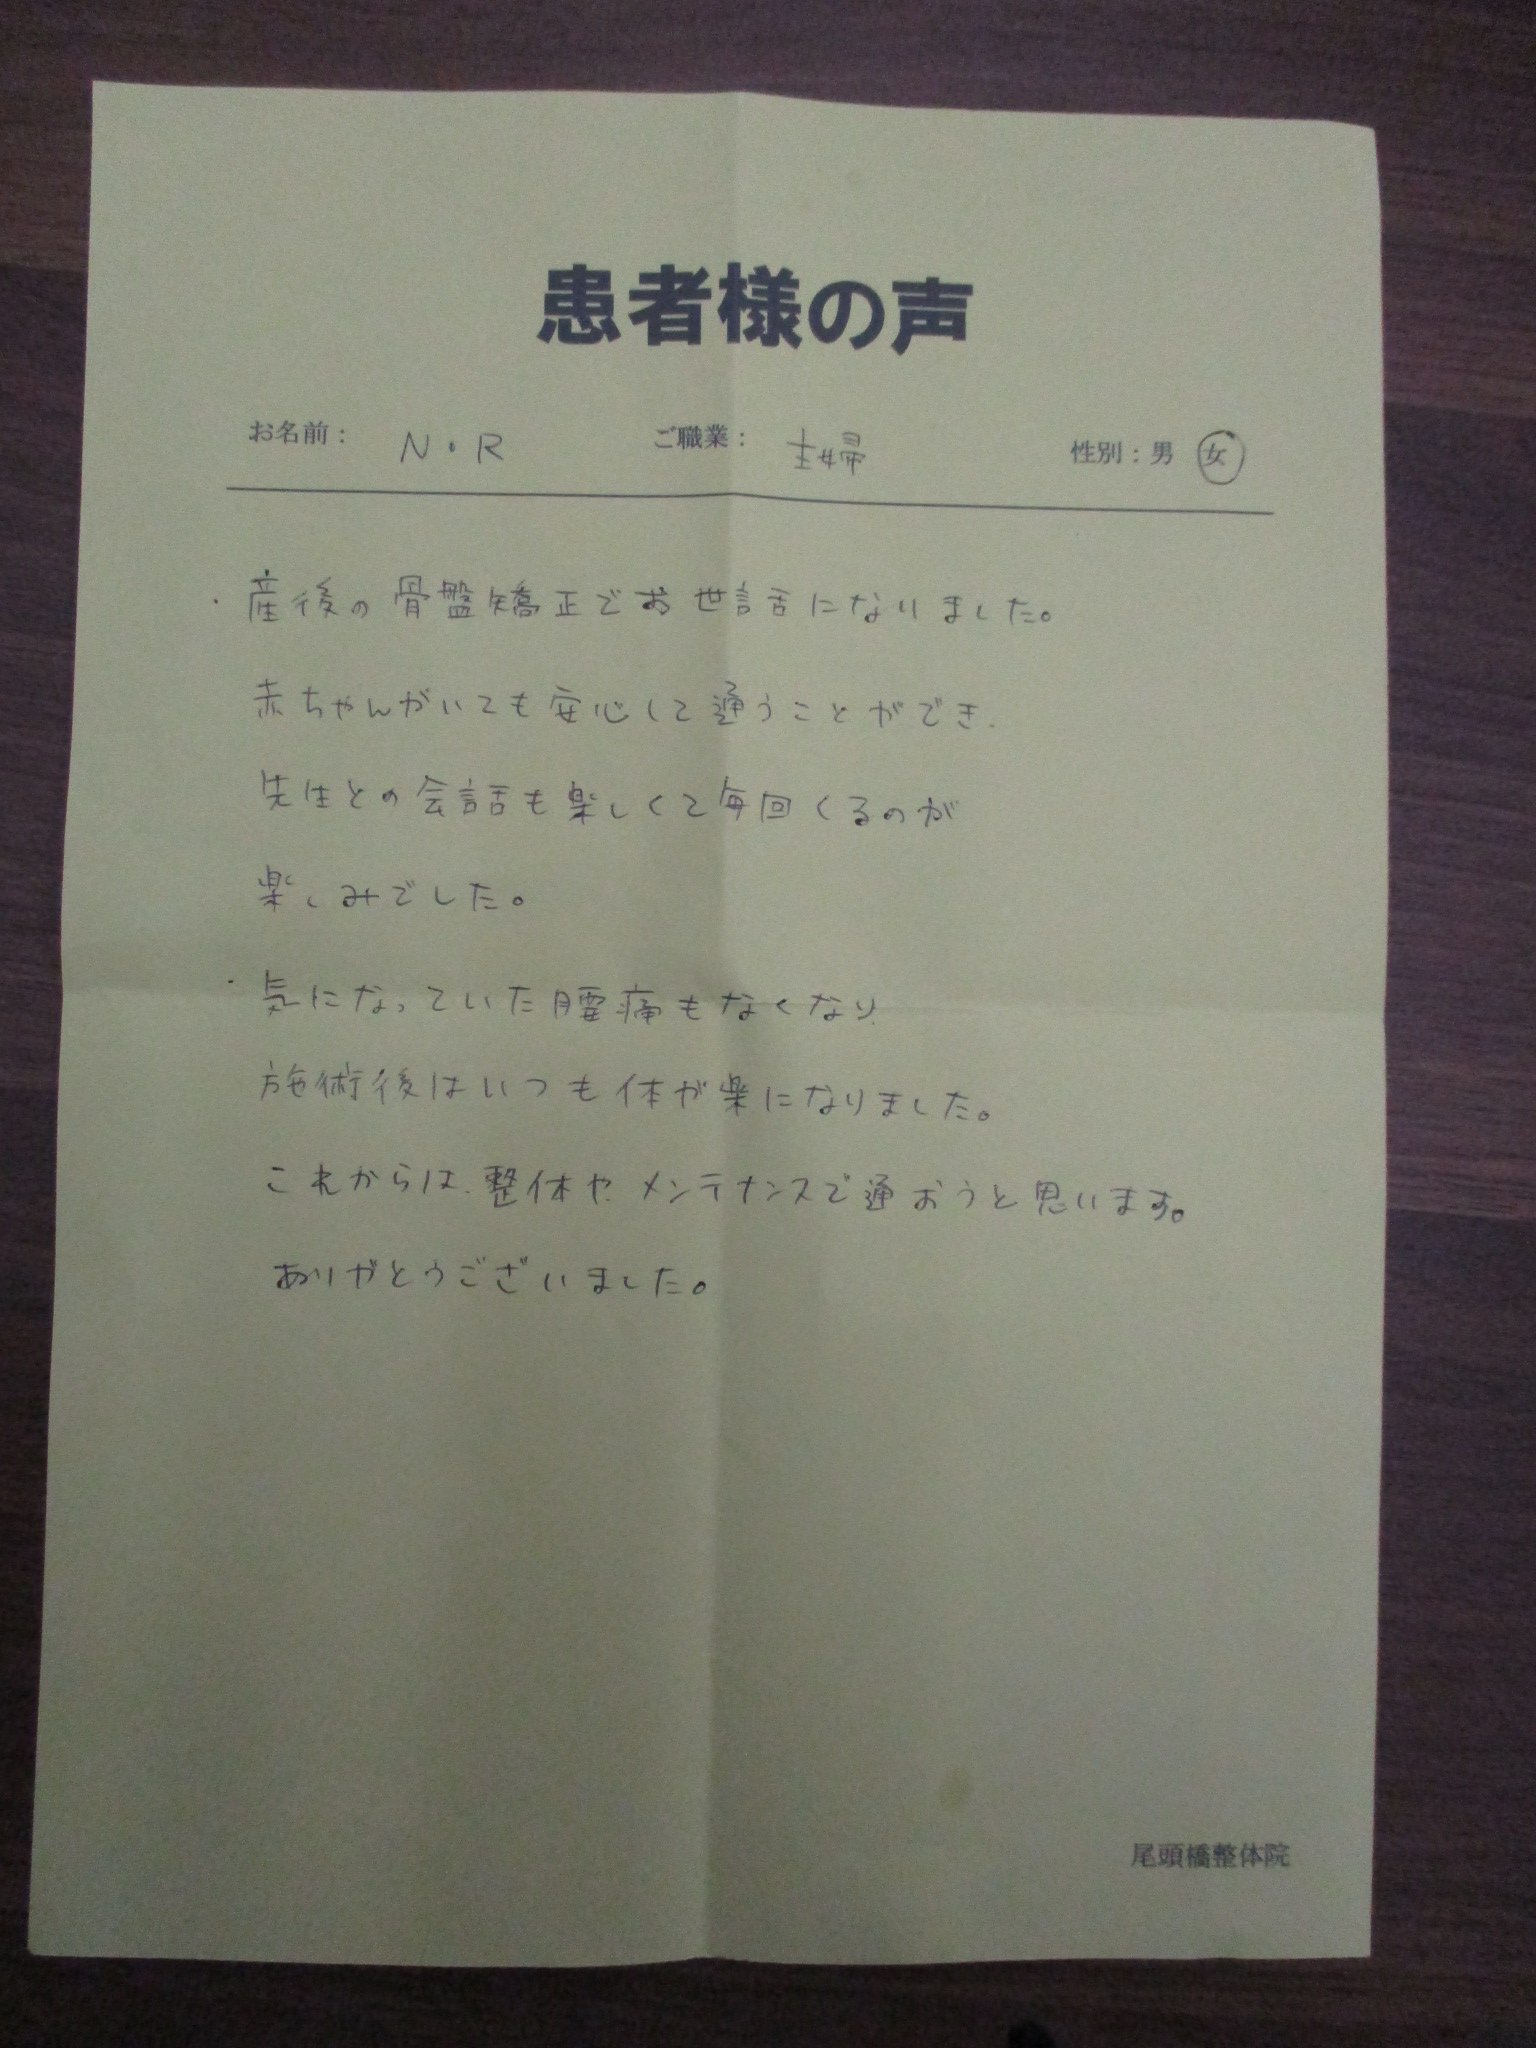 患者様の声
お名前： N・R ご職業： 主婦 性別：男 女
・産後の骨盤矯正でお世話になりました。
赤ちゃんがいても安心して通うことができ、
先生との会話も楽しくて毎回くるのが
楽しみでした。
・気になっていた腰痛もなくなり、
施術後はいつも体が楽になりました。
これからは、整体や、メンテナンスで通おうと思います。
ありがとうございました。
尾頭橋整体院